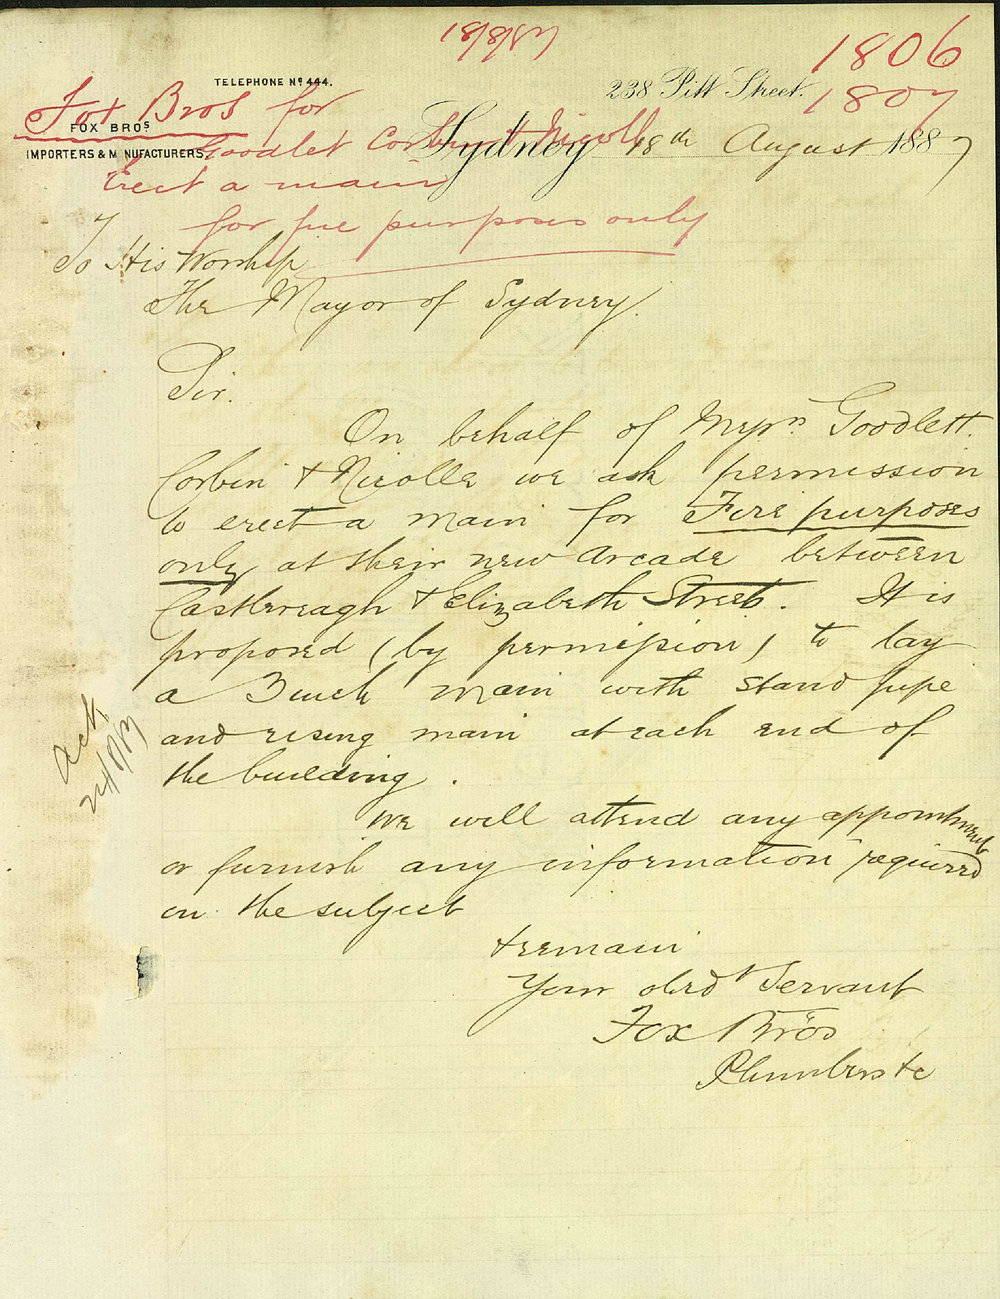 18/8/87
1806
1807
TELEPHONE No 444.
238 Pitt Street.
Fox Bros for
FOX BROS
IMPORTERS & M NUFACTURERS.
Goodlet Corbin & Nicoll
Sydney 18th August 1887
Erect a main
for fire purposes only
To His Worship
The Mayor of Sydney.
Sir.
On behalf of Messrs Goodlett.
Corbin & Nicolle we ask permission
to erect a main for Fire purposes
only at their new Arcade between
Castlereagh & Elizabeth Street. It is
proposed (by permission) to lay
a 3 inch main with stand pipe
and rising main at each end of
the building.
We will attend any appointment
or furnish any information required
on the subject
& remain
Your obed Servant
Fox Bros
Plumbers &c
Ack